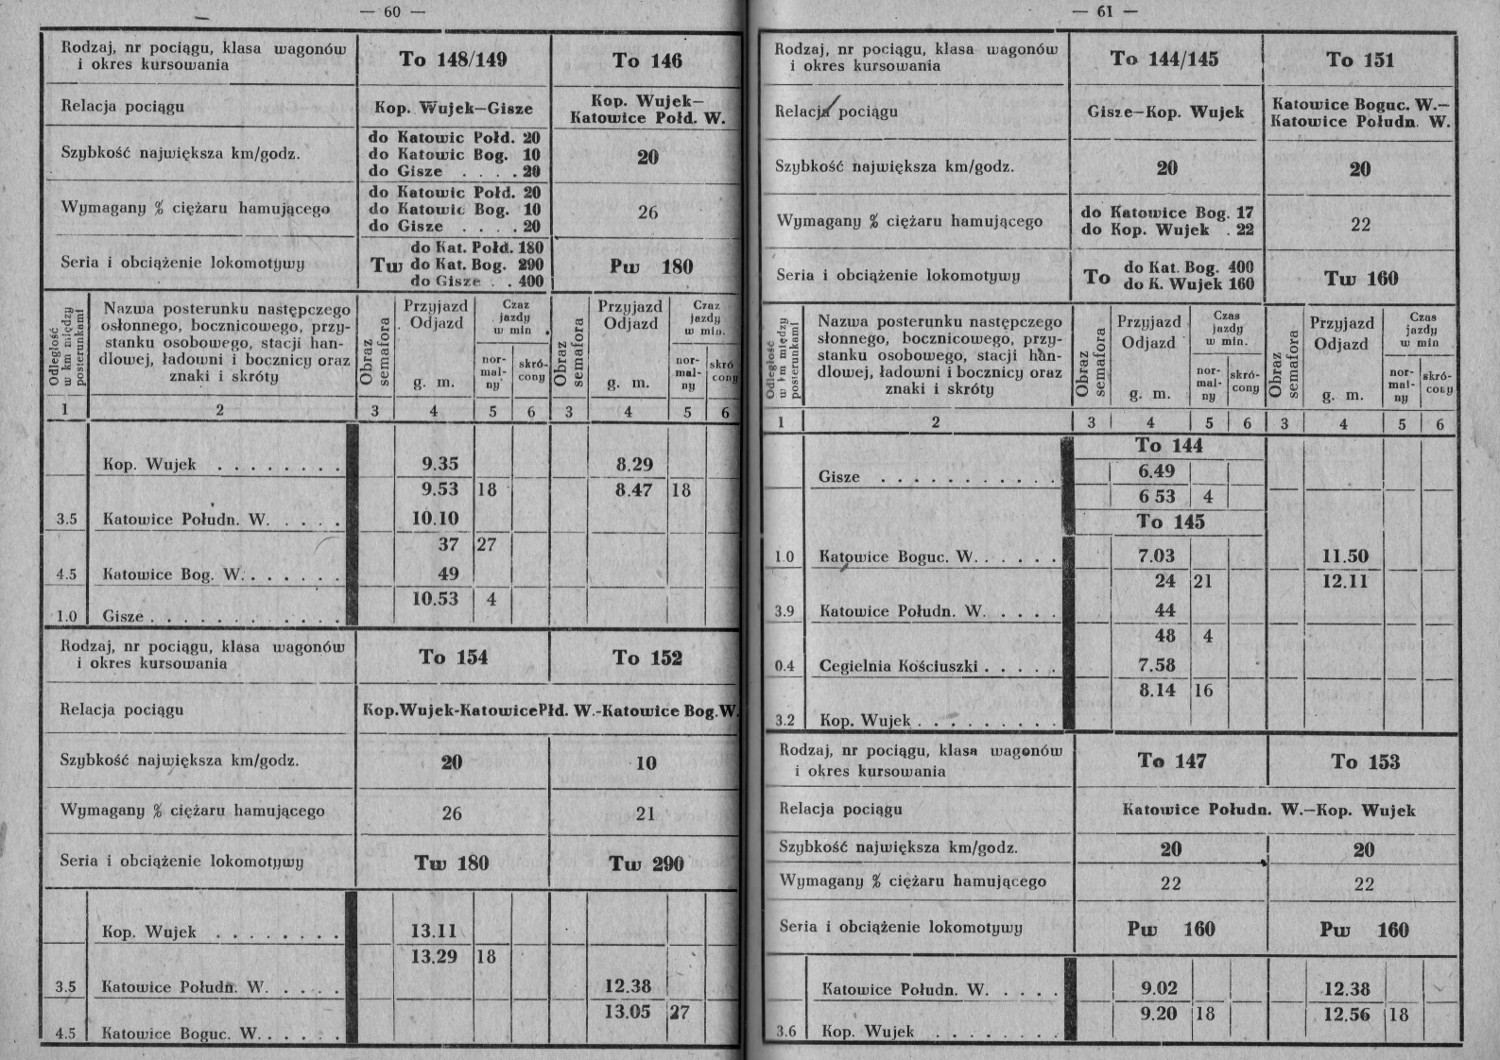 — 60 —
Rodzaj, nr pociągu, klasa wagonów
i okres kursowania
To 148/149
To 146
Relacja pociągu
Kop. Wujek—Gisze
Kop. Wujek—
Katowice Połd. W.
Szybkość największa km/godz.
do Katowic Połd. 20
do Katowic Bog. 10
do Gisze . . . . 20
20
Wymagany % ciężaru hamującego
do Katowic Połd. 20
do Katowic Bog. 10
do Gisze . . . . 20
26
Seria i obciążenie lokomotywy
Tw
do Kat. Połd. 180
do Kat. Bog. 290
do Gisze . . 400
Pw 180
Odległość
w km między
posterunkami
Nazwa posterunku następczego
osłonnego, bocznicowego, przy-
stanku osobowego, stacji han-
dlowej, ładowni i bocznicy oraz
znaki i skróty
Obraz
semafora
Przyjazd
Odjazd
g. m.
Czaz
jazdy
w min.
nor-
mal-
ny
skró-
cony
Obraz
semafora
Przyjazd
Odjazd
g. m.
Czaz
jazdy
w min.
nor-
mal-
ny
skró
cony
1 2 3 4 5 6 3 4 5 6
Kop. Wujek . . . . . . . . 9.35 8.29
9.53 18 8.47 18
3.5 Katowice Połudn. W. . . . . 10.10
37 27
4.5 Katowice Bog. W. . . . . . . 49
10.53 4
1.0 Gisze . . . . . . . . . . .
Rodzaj, nr pociągu, klasa wagonów
i okres kursowania
To 154
To 152
Relacja pociągu
Kop.Wujek-KatowicePłd. W.-Katowice Bog.W.
Szybkość największa km/godz. 20 10
Wymagany % ciężaru hamującego 26 21
Seria i obciążenie lokomotywy Tw 180 Tw 290
Kop. Wujek . . . . . . . . 13.11
13.29 18
3.5 Katowice Połudn. W. . . . . 12.38
13.05 27
4.5 Katowice Boguc. W. . . . . .
— 61 —
Rodzaj, nr pociągu, klasa wagonów
i okres kursowania
To 144/145
To 151
Relacja pociągu
Gisze—Kop. Wujek
Katowice Boguc. W.—
Katowice Połudn. W.
Szybkość największa km/godz. 20 20
Wymagany % ciężaru hamującego
do Katowice Bog. 17
do Kop. Wujek . 22
22
Seria i obciążenie lokomotywy
To
do Kat. Bog. 400
do K. Wujek 160
Tw 160
Odległość
w km między
posterunkami
Nazwa posterunku następczego
słonnego, bocznicowego, przy-
stanku osobowego, stacji han-
dlowej, ładowni i bocznicy oraz
znaki i skróty
Obraz
semafora
Przyjazd
Odjazd
g. m.
Czas
jazdy
w min.
nor-
mal-
ny
skró-
cony
Obraz
semafora
Przyjazd
Odjazd
g. m.
Czas
jazdy
w min
nor-
mal-
ny
skró-
cony
1 2 3 4 5 6 3 4 5 6
To 144
Gisze . . . . . . . . . . . 6.49
6 53 4
To 145
1.0 Katowice Boguc. W. . . . . . 7.03 11.50
24 21 12.11
3.9 Katowice Połudn. W. . . . . 44
48 4
0.4 Cegielnia Kościuszki . . . . . 7.58
8.14 16
3.2 Kop. Wujek . . . . . . . . .
Rodzaj, nr pociągu, klasa wagonów
i okres kursowania
To 147
To 153
Relacja pociągu
Katowice Połudn. W.—Kop. Wujek
Szybkość największa km/godz. 20 20
Wymagany % ciężaru hamującego 22 22
Seria i obciążenie lokomotywy Pw 160 Pw 160
Katowice Połudn. W. . . . . 9.02 12.38
9.20 18 12.56 18
3.6 Kop. Wujek . . . . . . . .